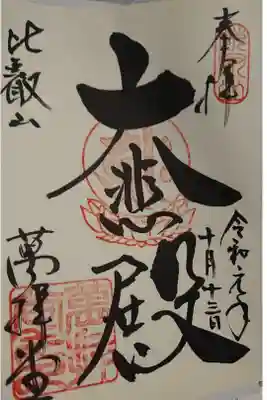 奉拝
令和元年
十月十三日
大悲殿
比叡山
萬拝堂